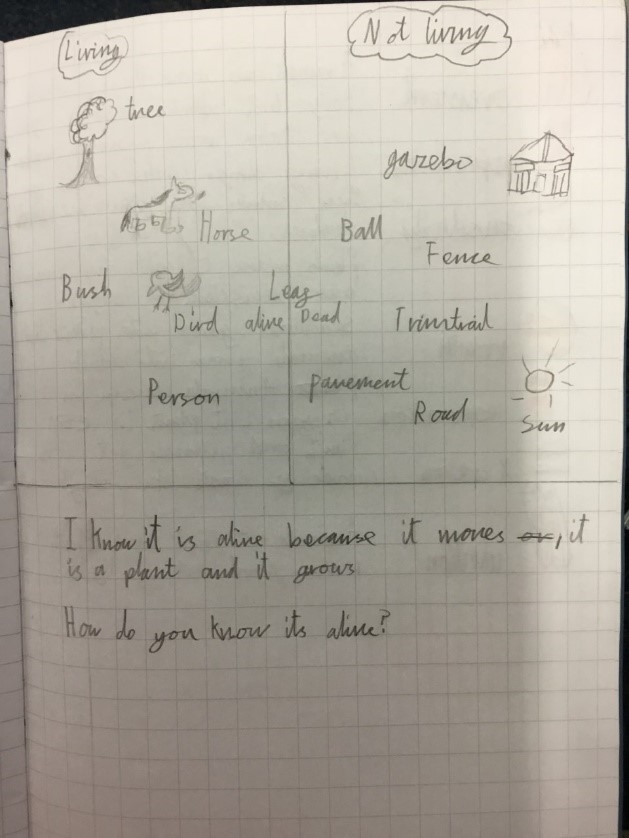 Living
Not living
tree
gazebo
Horse
Ball
Fence
Bush
Leag
Dird
alive Dead
Trimtrail
Person
pavement
Road
Sun
I know it is alive because it moves or, it
is a plant and it grows
How do you know its alive?